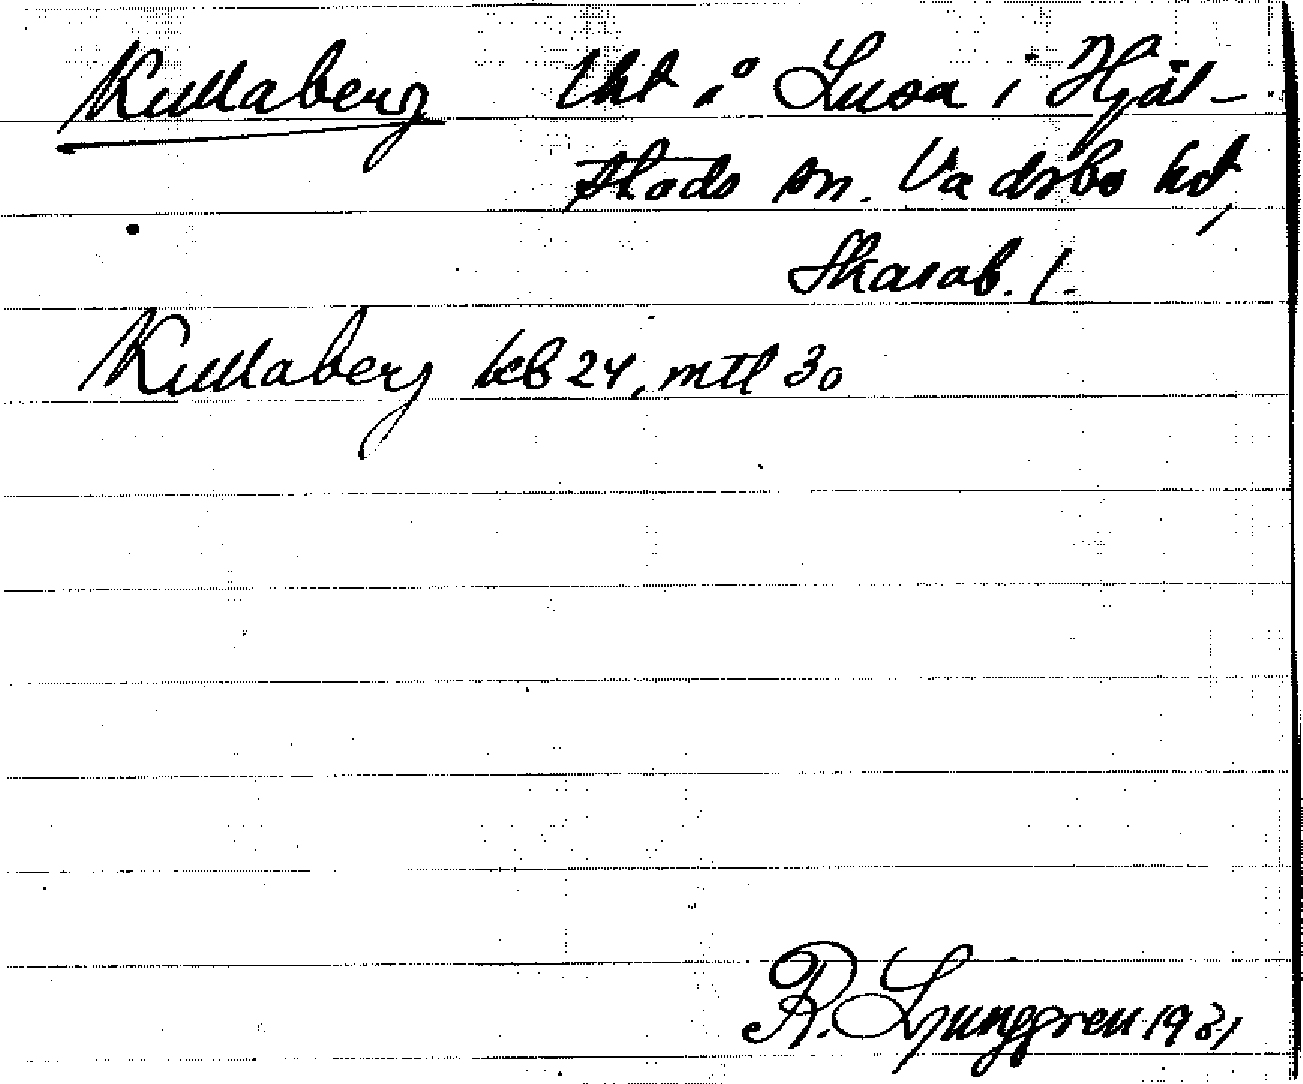 Kullaberg lht å Lusa i Hjäl-
stads sn. Vadsbo hd,
Skarab. l.
Kullaberg kb 24, mtl 30
R. Ljunggren 1931